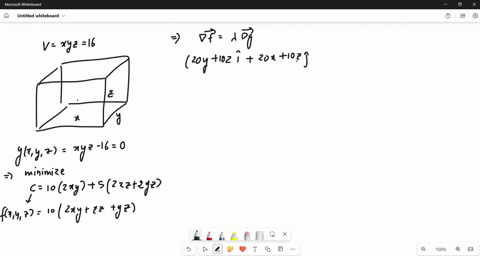 Microsoft Whiteboard
Untitled whiteboard
V = xyz = 16
z
x
y
g(x,y,z) = xyz - 16 = 0
⇒ minimize
C = 10(2xy) + 5(2xz + 2yz)
↓
f(x,y,z) = 10(2xy + xz + yz)
⇒ ∇f = λ ∇g
(20y + 10z î + 20x + 10z ĵ
100%